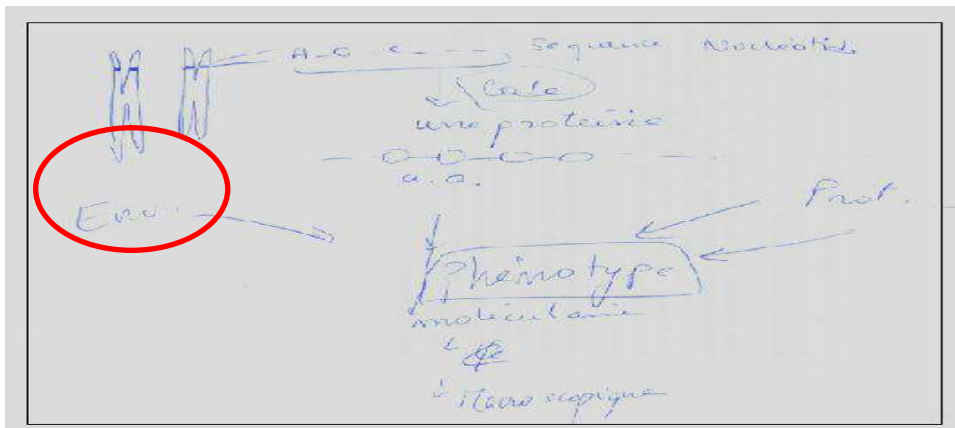 A-G C - - - - Sequence Nucléotid
Code
une protéine
- O-O-O-O - - -
a.a.
Prot.
Env.
Phénotype
moléculaire
↓
↓ Macroscopique